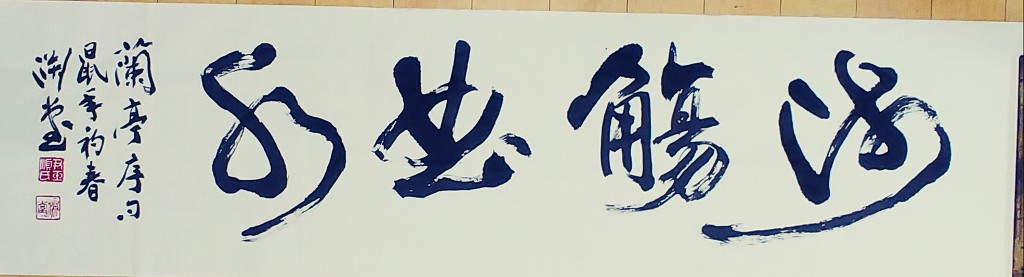 流觴曲水
蘭亭序句
鼠年初春